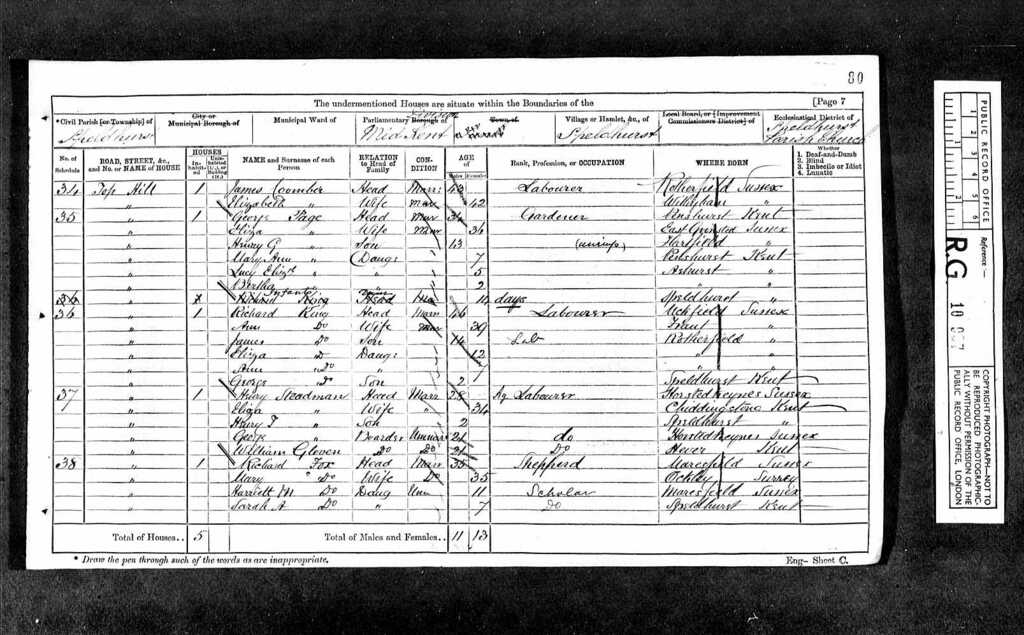 80
The undermentioned Houses are situate within the Boundaries of the [Page 7
*Civil Parish [or Township] of Speldhurst
City or Municipal Borough of
Municipal Ward of
Parliamentary Borough of Division Mid Kent
Town of
Village or Hamlet, &c., of Speldhurst
Local Board, or [Improvement Commissioners District] of
Ecclesiastical District of Speldhurst Parish Church
No. of Schedule
ROAD, STREET, &c., and No. or NAME of HOUSE
HOUSES
In-habited
NAME and Surname of each Person
RELATION to Head of Family
CON-DITION
AGE of
Males Females
Rank, Profession, or OCCUPATION
WHERE BORN
Whether
1. Deaf-and-Dumb
2. Blind
3. Imbecile or Idiot
4. Lunatic
34 Top Hill 1 James Coomber Head Marr: 43 Labourer Rotherfield Sussex
" Elizabeth " Wife Mar 42 Withyham "
35 " 1 George Page Head Mar 34 Gardener Penshurst Kent
" Eliza " Wife Mar 36 East Grinsted Sussex
" Henry G " Son 13 Hartfield "
" Mary Ann " Daug: 7 Penshurst Kent
" Lucy Elizth " " 5 Ashurst "
" Bertha 2 " "
" Infant 14 days Speldhurst "
36 " 1 Richard King Head Marr 46 Labourer Uckfield Sussex
" Ann Do Wife Mar 39 Frant "
" James Do Son 14 Lab Rotherfield "
" Eliza D Daug: 12 " "
" Ann Do " 7 " "
" George Do Son 2 Speldhurst Kent
37 " 1 Henry Steadman Head Marr 28 Ag Labourer Horsted Keynes Sussex
" Eliza " Wife " 34 Chiddingstone Kent
" Henry T " Son 2 Speldhurst "
" George " Boarder Unmar 21 do Horsted Keynes Sussex
" William Do Do 21 Do Hever Kent
38 " 1 Richard Fox Head Marr 38 Shepperd Maresfield Sussex
" Mary " Do Wife Do 35 Ockley Surrey
" Harriett M Do Daug Unm 11 Scholar Maresfield Sussex
" Sarah A Do " 7 Do Speldhurst Kent
Total of Houses.. 5 Total of Males and Females.. 11 13
* Draw the pen through such of the words as are inappropriate.
Eng— Sheet C.
PUBLIC RECORD OFFICE
1 2 3 4 5 6
Reference:—
R.G 10
COPYRIGHT PHOTOGRAPH—NOT TO BE REPRODUCED PHOTOGRAPHICALLY WITHOUT PERMISSION OF THE PUBLIC RECORD OFFICE, LONDON